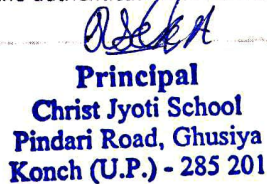 Principal
Christ Jyoti School
Pindari Road, Ghusiya
Konch (U.P.) - 285 201